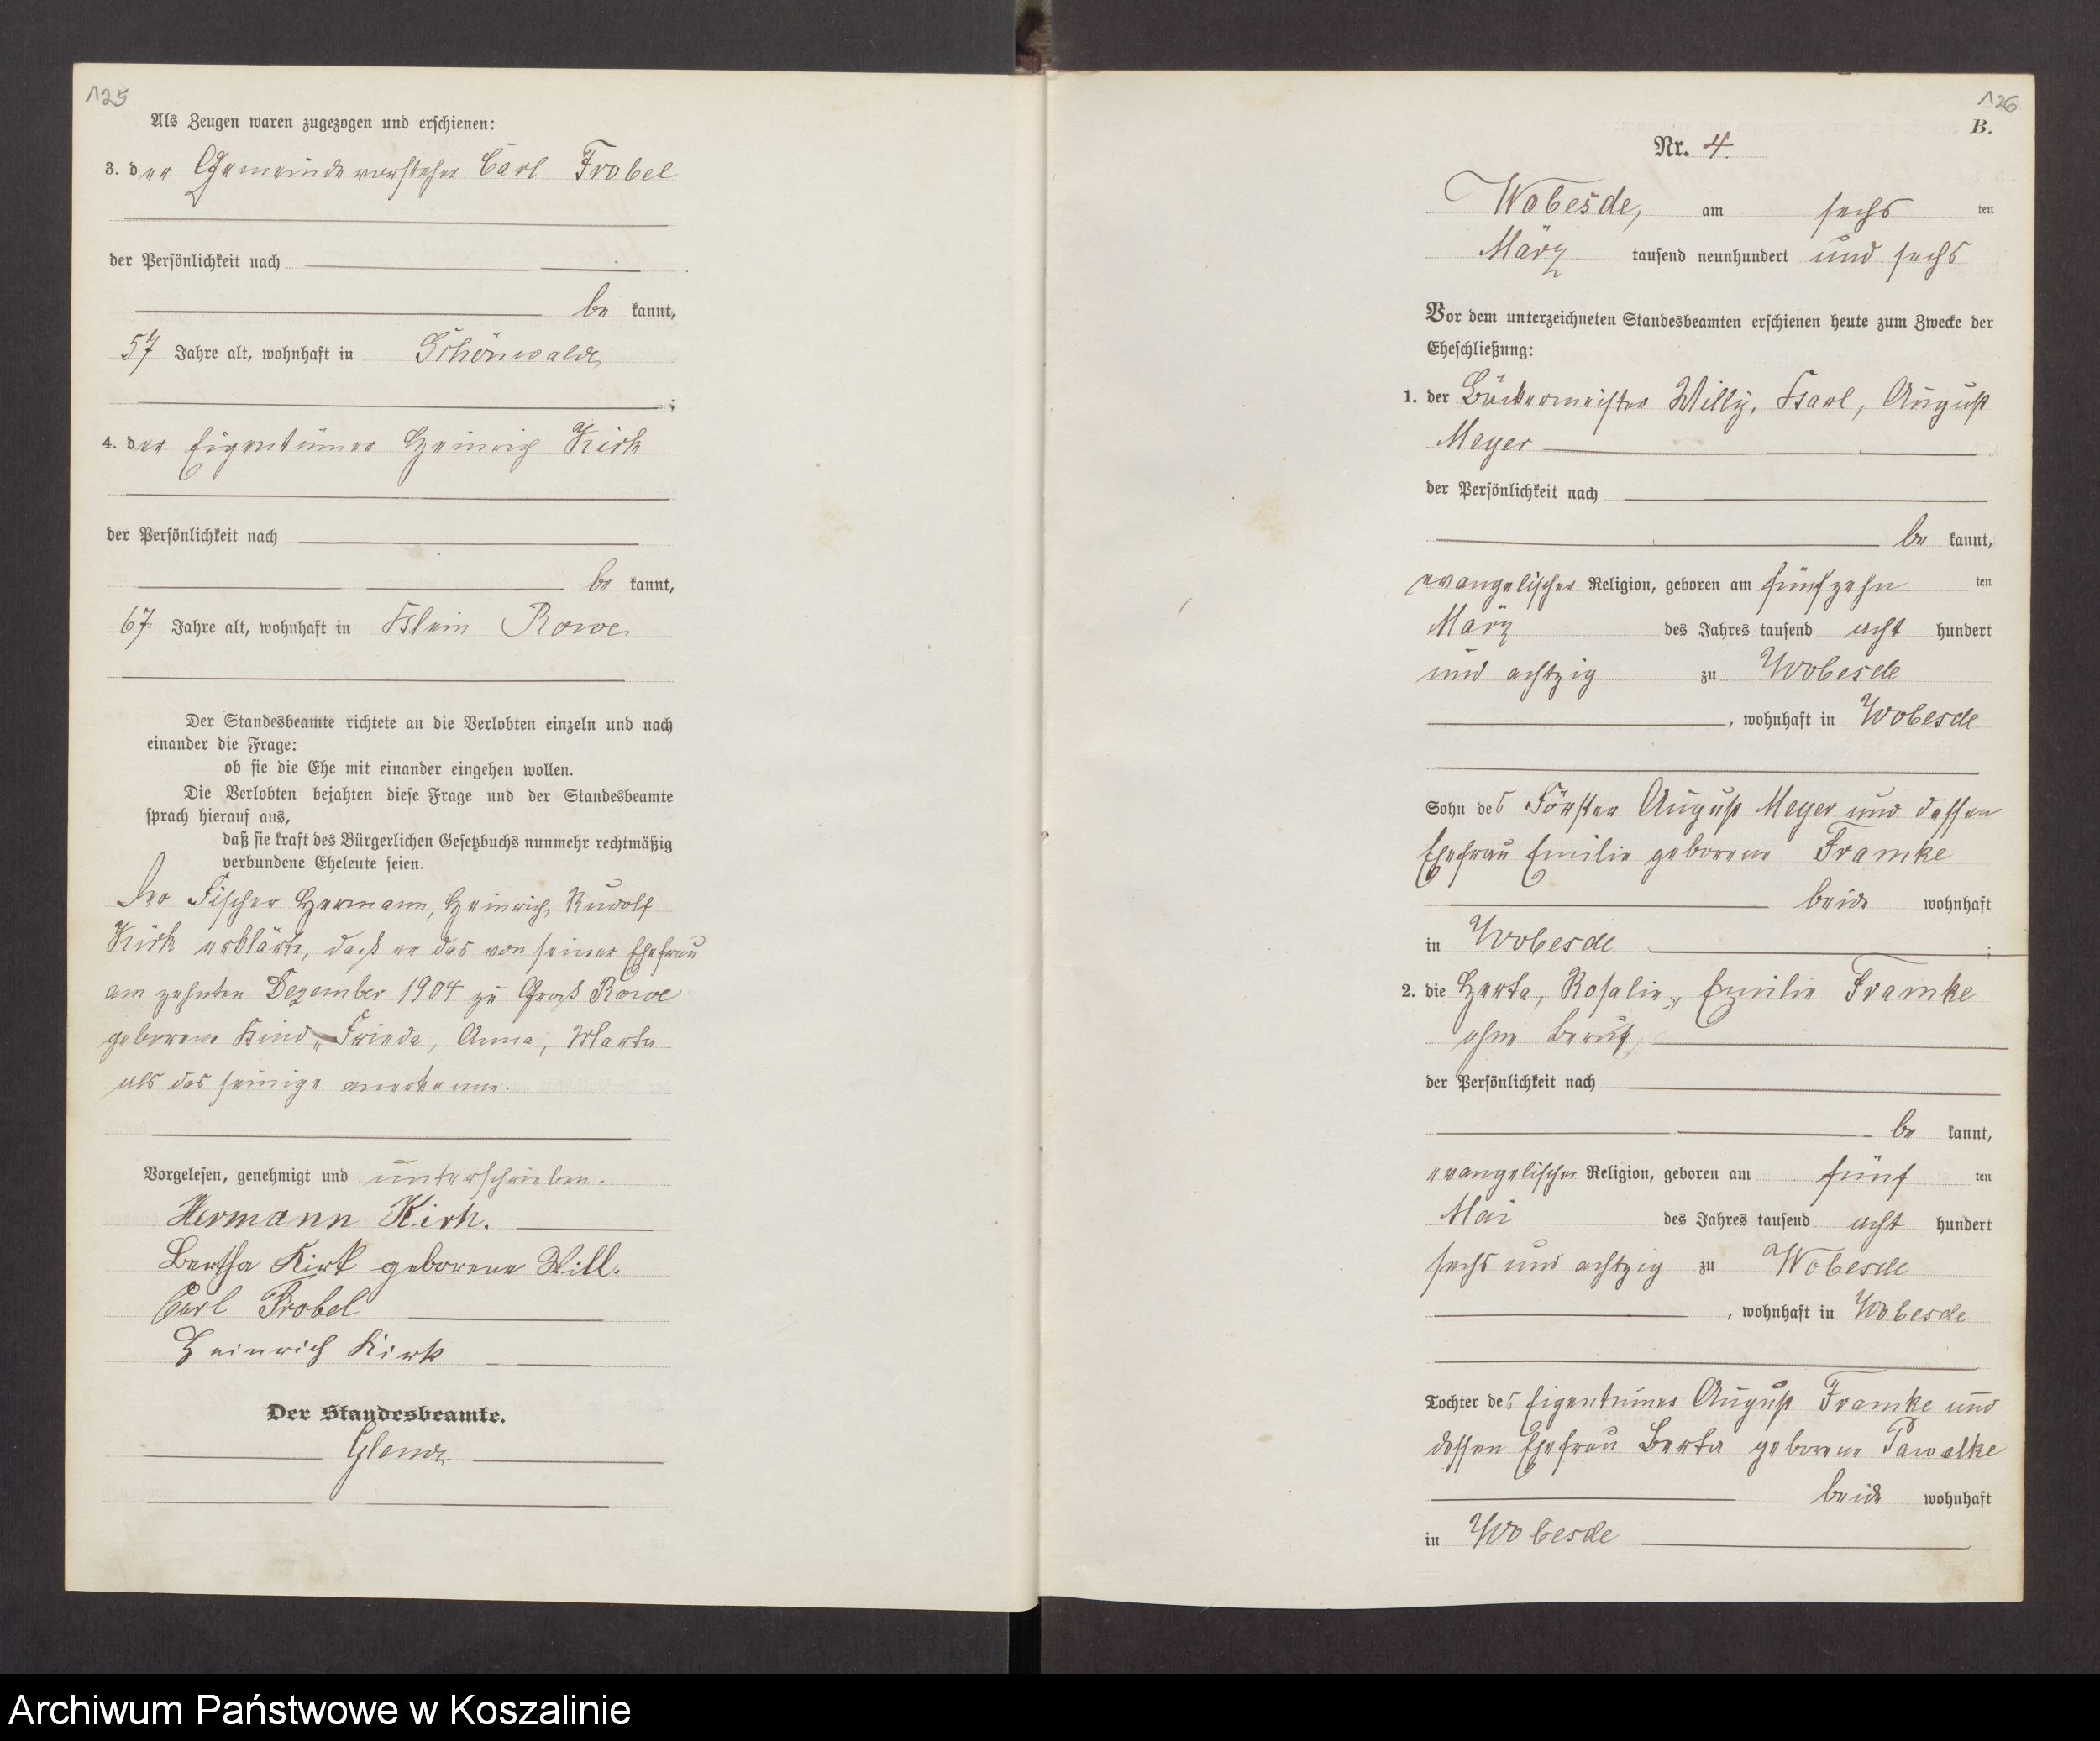 125
Als Zeugen waren zugezogen und erschienen:
3. der Gemeindevorsteher Carl Frobel
der Persönlichkeit nach
be kannt,
57 Jahre alt, wohnhaft in Schönwalde
;
4. der Eigentümer Heinrich Kirk
der Persönlichkeit nach
be kannt,
67 Jahre alt, wohnhaft in Klein Rowe
Der Standesbeamte richtete an die Verlobten einzeln und nach
einander die Frage:
ob sie die Ehe mit einander eingehen wollen.
Die Verlobten bejahten diese Frage und der Standesbeamte
sprach hierauf aus,
daß sie kraft des Bürgerlichen Gesetzbuchs nunmehr rechtmäßig
verbundene Eheleute seien.
Der Fischer Hermann, Heinrich, Rudolf
Kirk erklärte, daß er das von seiner Ehefrau
am zehnten Dezember 1904 zu Groß Rowe
geborene Kind „Frieda, Anna, Martha
als das seinige anerkenne.
Vorgelesen, genehmigt und unterschrieben.
Hermann Kirk.
Bertha Kirk geborene Will.
Carl Frobel
Heinrich Kirk
Der Standesbeamte.
126
B.
Nr. 4.
Wobesde, am sechs ten
März tausend neunhundert und sechs
Vor dem unterzeichneten Standesbeamten erschienen heute zum Zwecke der
Eheschließung:
1. der Bäckermeister Willy, Karl, August
Meyer
der Persönlichkeit nach
be kannt,
evangelischer Religion, geboren am fünfzehn ten
März des Jahres tausend acht hundert
und achtzig zu Wobesde
, wohnhaft in Wobesde
Sohn des Förster August Meyer und dessen
Ehefrau Emilie geborene Framke
beide wohnhaft
in Wobesde ;
2. die Herta, Rosalie, Emilie Framke
ohne Beruf,
der Persönlichkeit nach
be kannt,
evangelischer Religion, geboren am fünf ten
Mai des Jahres tausend acht hundert
sechs und achtzig zu Wobesde
, wohnhaft in Wobesde
Tochter des Eigentümer August Framke und
dessen Ehefrau Berta geborene Pawelke
beide wohnhaft
in Wobesde
Archiwum Państwowe w Koszalinie